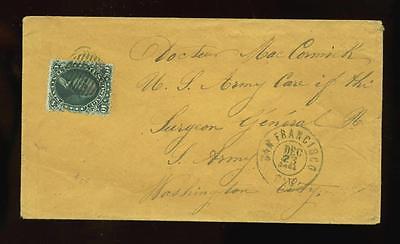 Doctor MacCormick
U. S. Army Care of the
Surgeon General U
S. Army
Washington City.
SAN FRANCISCO
DEC
23
CAL.